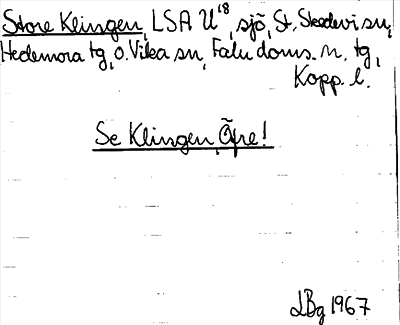 Store Klingen, LSA U¹⁸, sjö, St. Skedevi sn,
Hedemora tg, o. Vika sn, Falu doms. n. tg,
Kopp. l.
Se Klingen, Övre!
LBg 1967